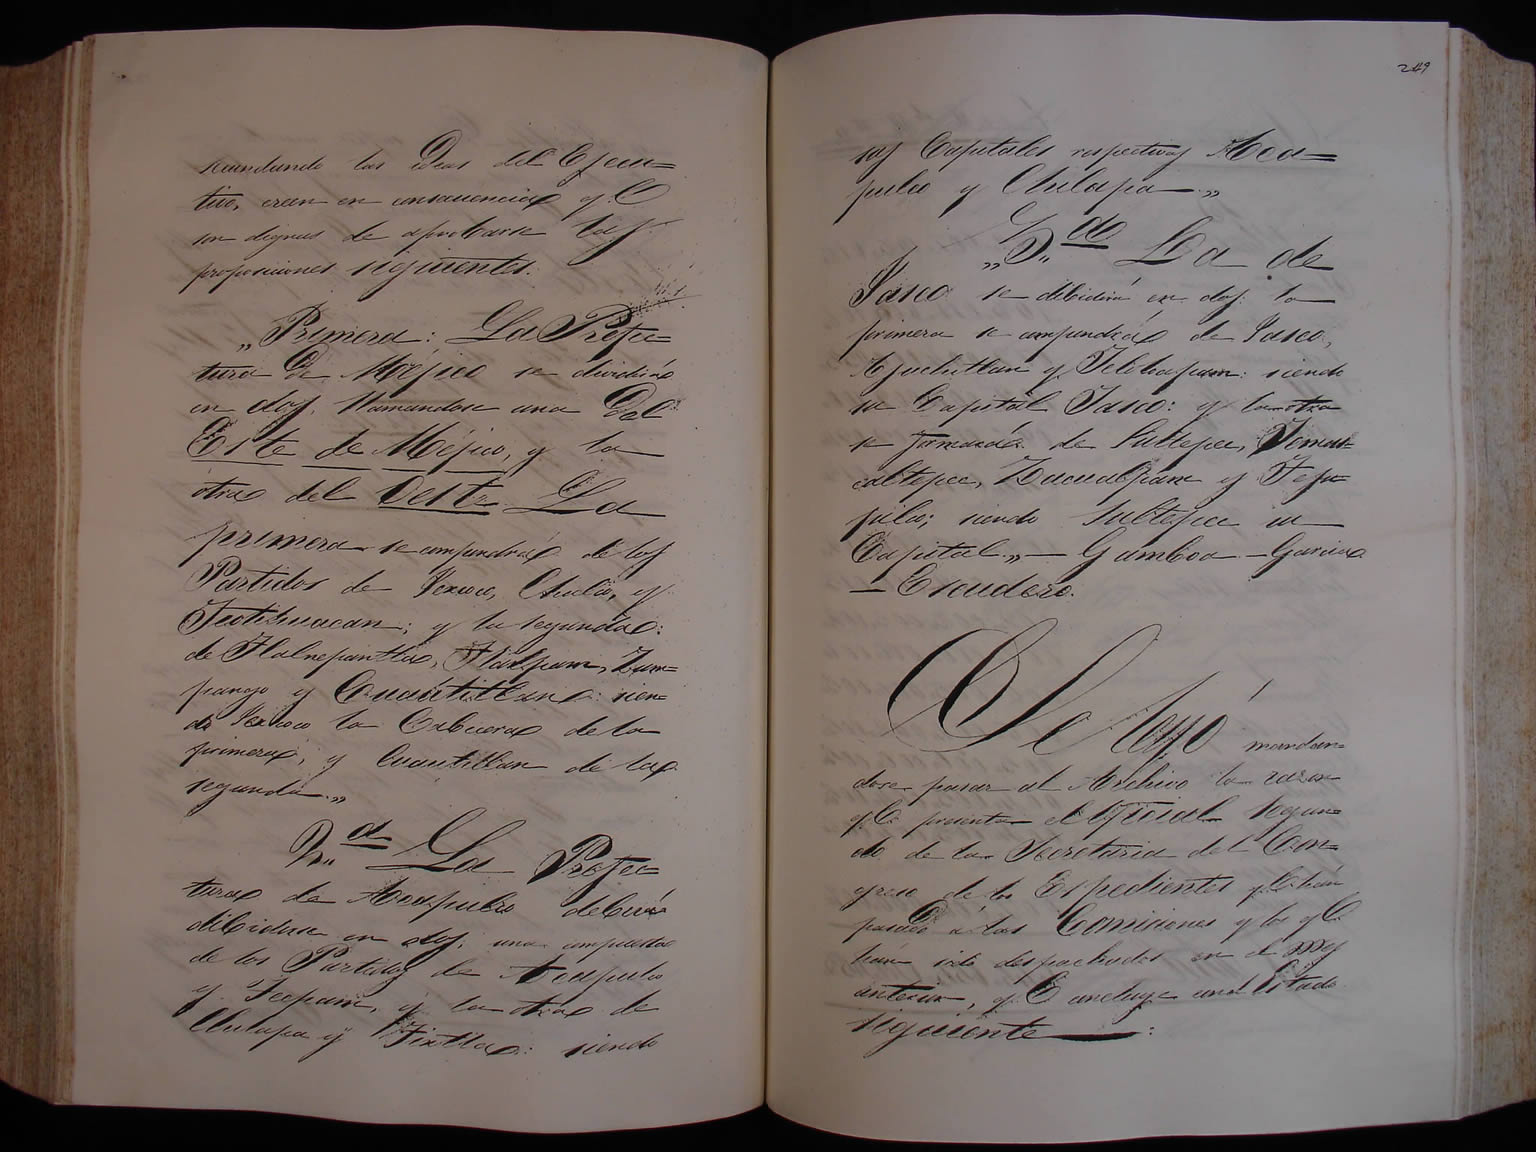 secundando las Ideas del Ejecu=
tivo, creen en consecuencia q.e
son dignas de aprobarse las
proposiciones siguientes:
„Primera: La Prefec=
tura de Méjico se dividirá
en dos, llamandose una Del
Este de Méjico, y la
ótra del Oeste La
primera se compondrá de los
Partidos de Texcoco, Chalco, y
Teotihuacan; y la segunda:
de Tlalnepantla, Tlalpam, Zum=
pango y Cuautitlan: sien=
do Texcoco la Cabecera de la
primera, y Cuautitlan de la
segunda.„
2.da La Prefec=
tura de Acapulco deberá
dibidirse en dos; una compuesta
de los Partidos de Acapulco
y Tecpam, y la otra de
Chilapa y Tixtla: siendo
249
sus Capitales respectivas Aca=
pulco y Chilapa.„
„3.da La de
Tasco se dibidirá en dos: la
primera se compondrá de Tasco,
Ajuchitlan y Teloloapam: siendo
su Capital Tasco: y la otra
se formará de Sultepec, Temas=
caltepec, Zacualpam y Teju=
pilco; siendo Sultepec su
Capital.„ — Gamboa — Garcia
— Escudero.
Se leyó mandan=
dose pasar al Archivo la razon
q.e presenta el Oficial Segun=
do de la Secretaria del Con=
greso de los Espedientes q.e han
pasado á las Comisiones y los q.e
han sido despachados en el mes
anterior, q.e concluye con el Estado
siguiente: